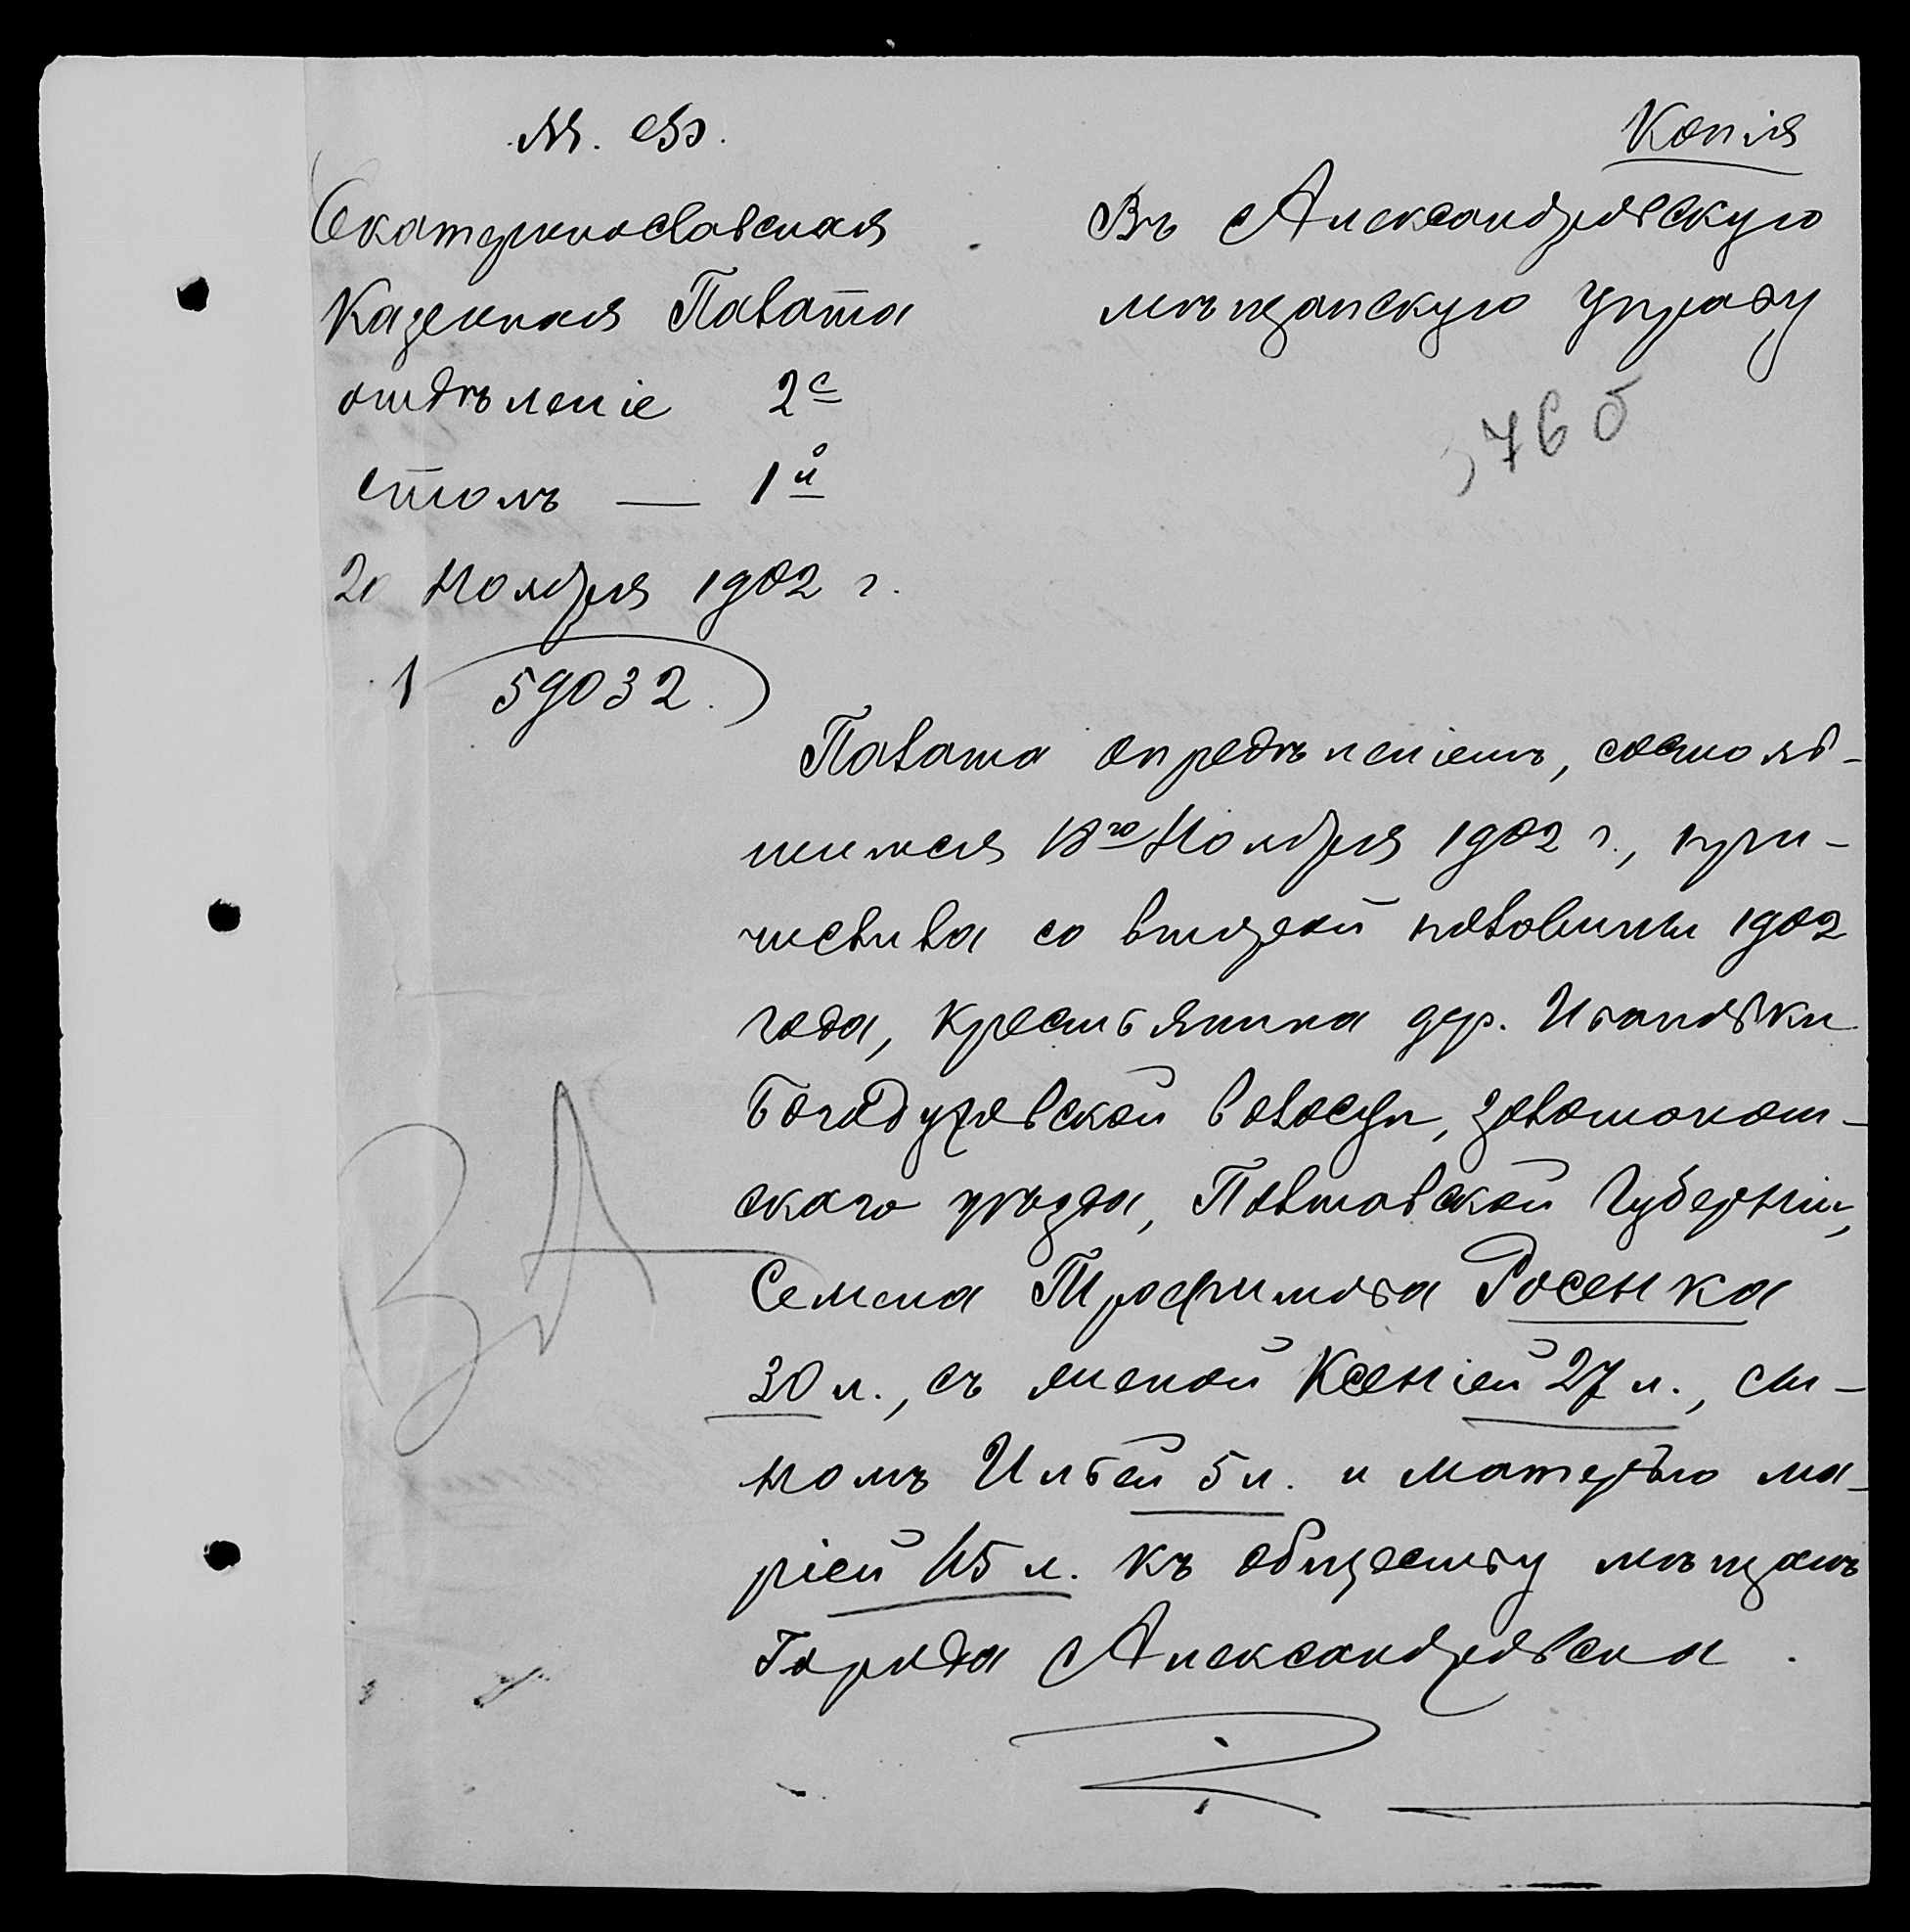 М. Ф.
Копія
Екатеринославская
Казенная Палата
отдѣленіе 2е
столъ — 1й
20 Ноября 1902 г.
59032.
Въ Александровскую
мѣщанскую управу
Палата опредѣленіемъ, состояв-
шимся 18го Ноября 1902 г., при-
числила со второй половины 1902
года, крестьянина дер. Ивановки
Богодуховской волости, Золотонош-
скаго уѣзда, Полтавской Губерніи,
Семена Трофимова Росенка
30 л., съ женой Ксеніей 27 л., сы-
номъ Ильей 5 л. и матерью Ма-
ріей 45 л. къ обществу мѣщанъ
Города Александровска.